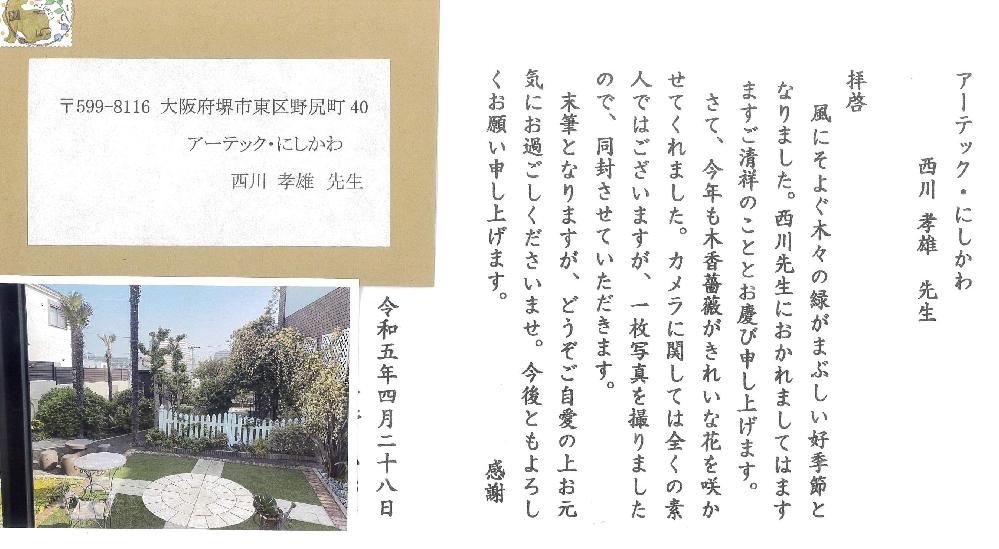 〒599-8116 大阪府堺市東区野尻町 40
アーテック・にしかわ
西川 孝雄 先生
アーテック・にしかわ
西川 孝雄 先生
拝啓
風にそよぐ木々の緑がまぶしい好季節と
なりました。西川先生におかれましてはます
ますご清祥のこととお慶び申し上げます。
さて、今年も木香薔薇がきれいな花を咲か
せてくれました。カメラに関しては全くの素
人ではございますが、一枚写真を撮りました
ので、同封させていただきます。
末筆となりますが、どうぞご自愛の上お元
気にお過ごしくださいませ。今後ともよろし
くお願い申し上げます。
感謝
令和五年四月二十八日